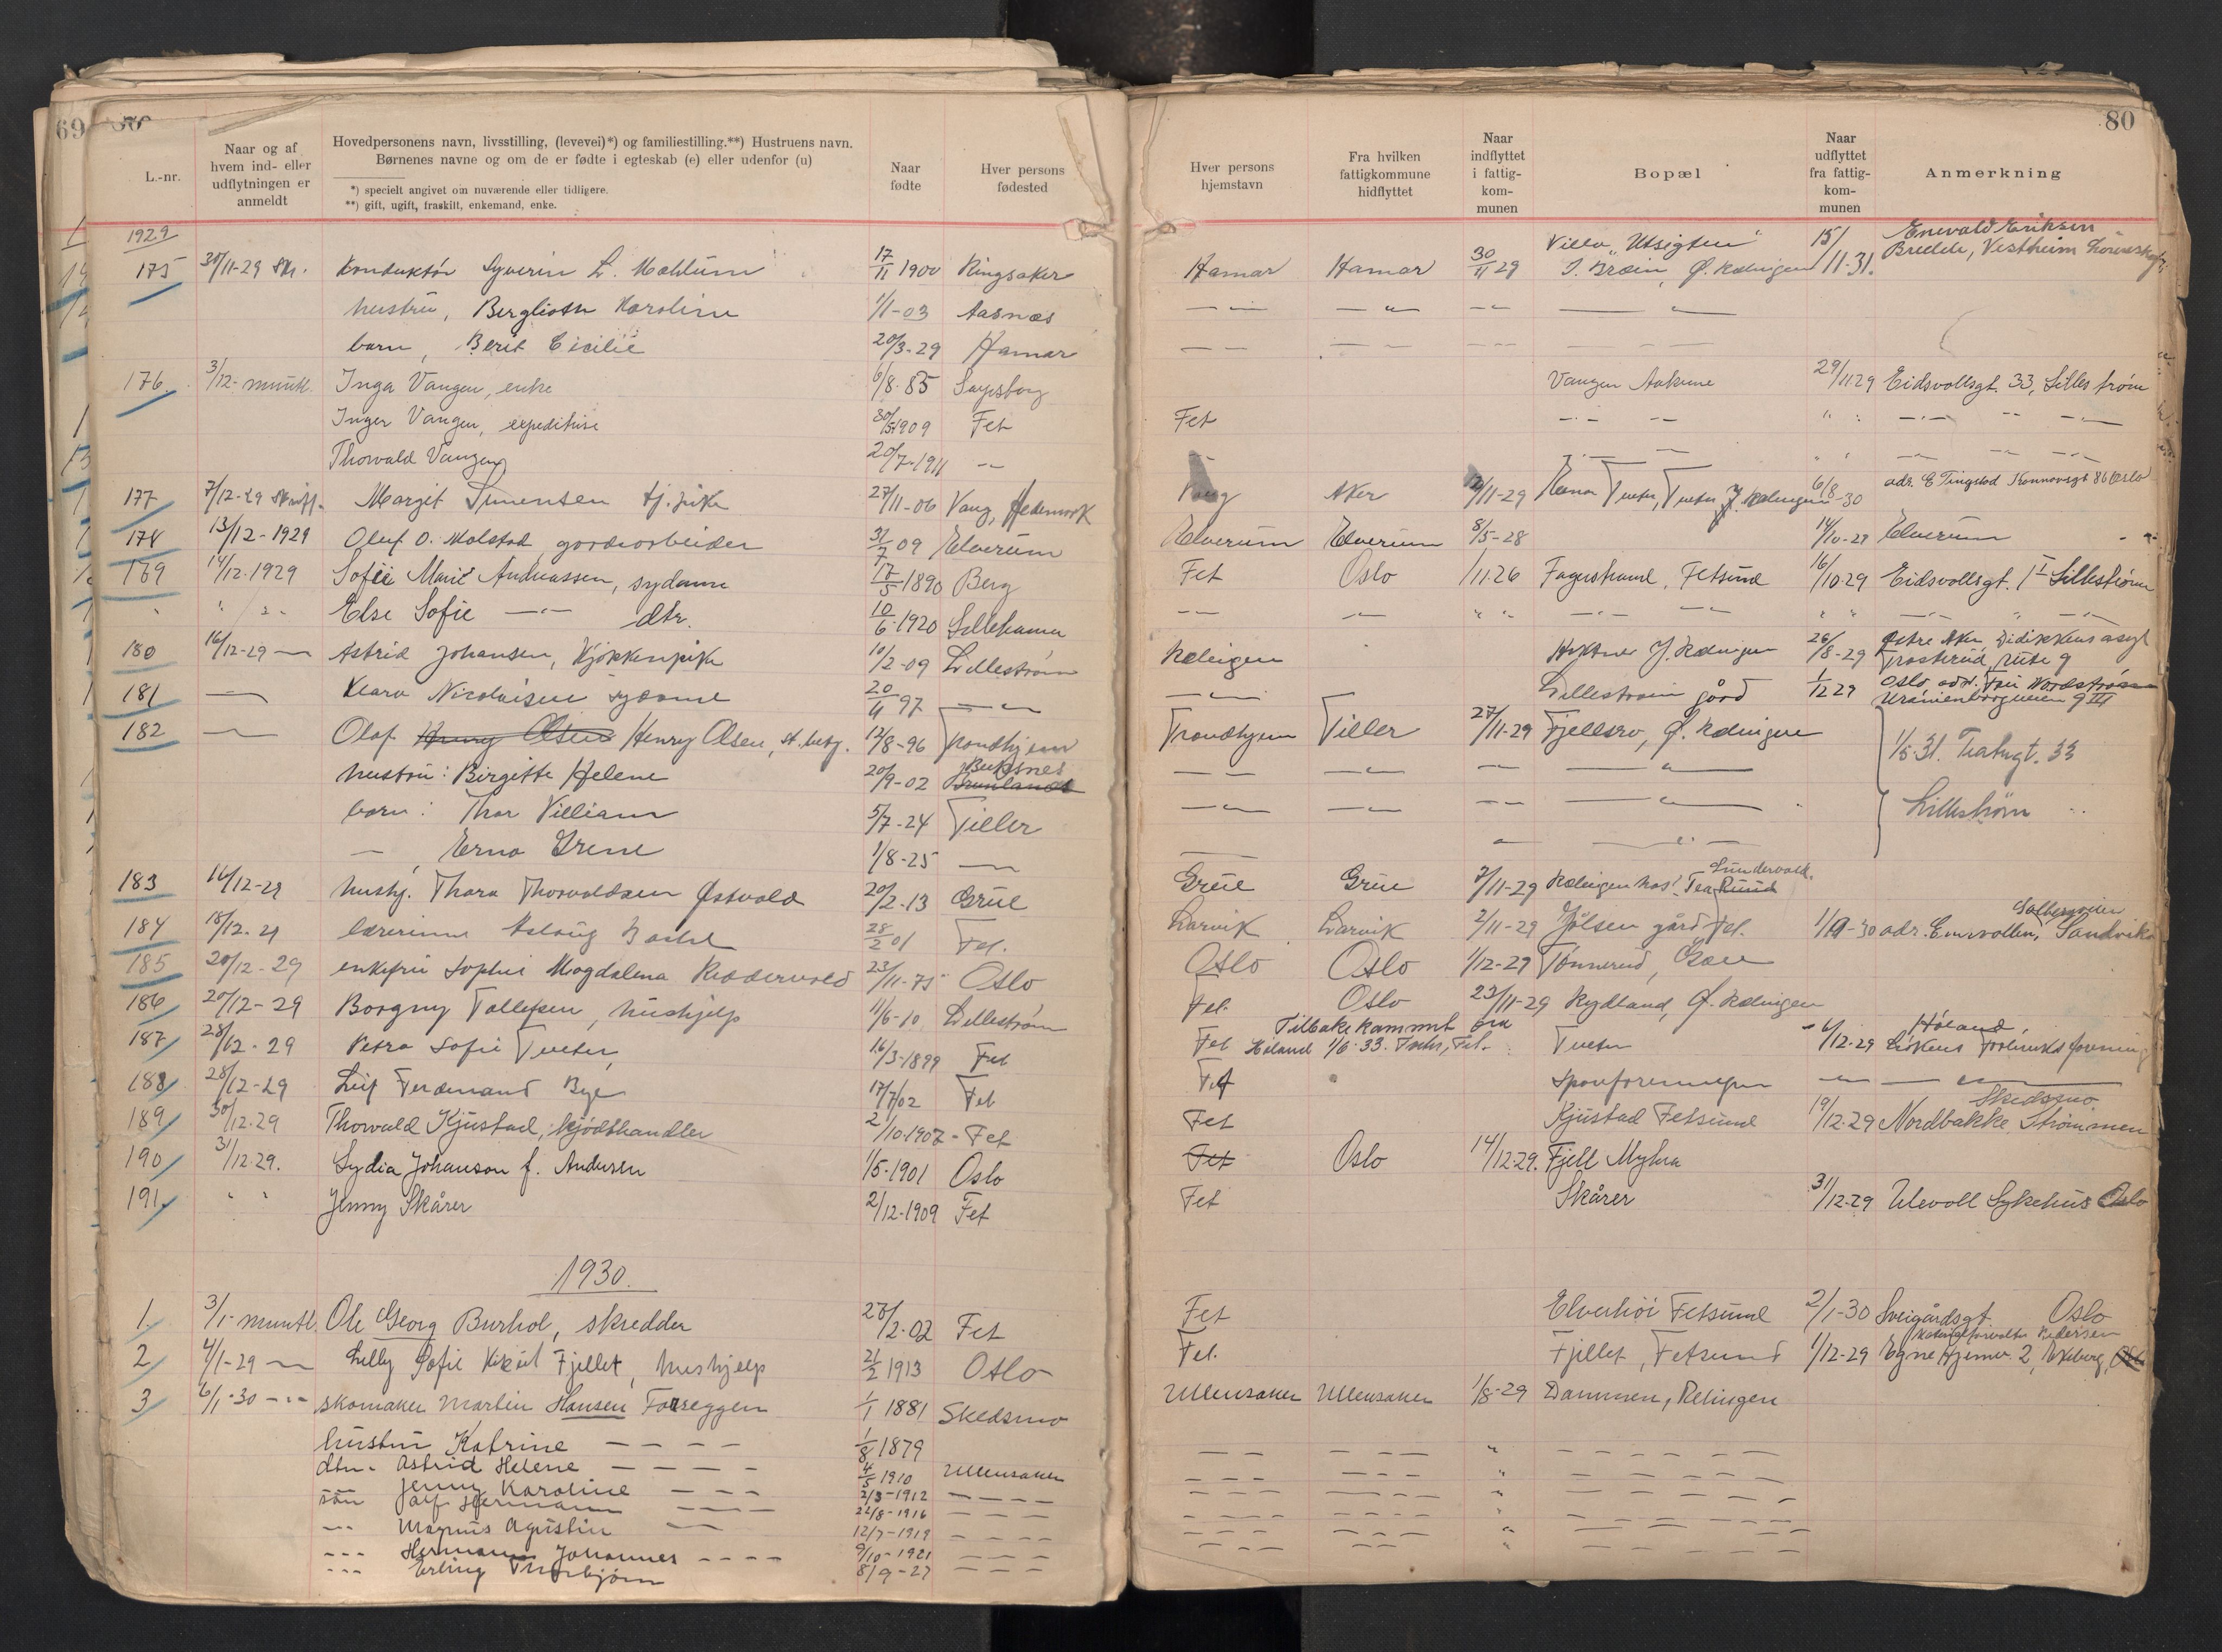 69
80
L.-nr.
Naar og af hvem ind- eller udflytningen er anmeldt
Hovedpersonens navn, livsstilling, (levevei)*) og familiestilling.**) Hustruens navn.
Børnenes navne og om de er fødte i egteskab (e) eller udenfor (u)
*) specielt angivet om nuværende eller tidligere.
**) gift, ugift, fraskilt, enkemand, enke.
Naar fødte
Hver persons fødested
Hver persons hjemstavn
Fra hvilken fattigkommune hidflyttet
Naar indflyttet i fattigkommunen
Bopæl
Naar udflyttet fra fattigkommunen
Anmerkning
1929
175 30/11-29 Konduktør Syverin L. Mahlum 17/11 1900 Ringsaker Hamar Hamar 30/11 29 Villa "Utsigten" Ø. Rælingen 15/11-31. Enevald Eriksen Vestheim
hustru, Berglioth Karoline 1/1-03 Aasnes
barn, Berit Cicilie 20/3-29 Hamar
176. 3/12- muntl. Inga Vangen, enke 6/8-85 Sarpsborg Vangen 29/11 29 Eidsvollsgt. 33, Lillestrøm
Inger Vangen, expeditrise 30/5 1909 Fet Fet
Thorvald Vangen 20/7-1911
177 7/12-29 Margit Simensen tj.pike 27/11-06 Vang, Hedemark Vang Aker /11-29 Tveter, Rælingen 6/8-30 adr. E Tingstad 86 Oslo
178 13/12-1929 Oluf O. Molstad gårdsarbeider 31/7 09 Elverum Elverum Elverum 8/5-28 14/10-29 Elverum
169 14/12.1929 Sofie Marie Andreassen, sydame 17/5-1890 Berg Fet Oslo 1/11.26 Fagerstrand, Fetsund 16/10-29 Eidsvollsgt. 1 I Lillestrøm
Else Sofie dtr. 10/6-1920 Lillehamer
180 16/12-29 Astrid Johansen, Kjøkkenpike 10/2-09 Lillestrøm Rælingen Rælingen 26/8-29 Vestre Aker, Didikkens asyl Trosterud, rute 9
181 Klara Nicolaisen sydame 20/4 97 Lillestrøm gård 1/12 29 Oslo adr. Nordstrøm Uranienborgveien 9 III
182 Olaf Henry Olsen Henry Olsen, 12/8-96 Trondhjem Trondhjem Tiller 27/11-29 Fjellsro, Ø. Rælingen
1/5-31. 33
Lillestrøm
hustru: Birgitte Helene 20/9-02 Buksnes
barn: Thor Villiam 5/7-24 Tiller
Erna Irene 1/8-25
183 16/12-29 hushj. Thora Thorvaldsen Østvold 20/2-13 Grue Grue Grue 7/11-29 Rælingen hos Tea Sundervold.
184 18/12.29 lærerinne Aslaug 28/2 01 Fet. Larvik Larvik 2/11-29 Jølsen gård Fet. adr. Solbergveien Sandvika
185 20/12-29 enkefru Sophie Magdalena Riddervold 23/11-75 Oslo Oslo Oslo 1/12-29 Tønnerud, Gan
186 20/12-29 Borgny Tollefsen, hushjelp 11/6-10 Lillestrøm Fet. Oslo 23/11-29 Rydland, Ø. Rælingen
187 28/12-29 Petra Sofie Tveter, 16/3-1899 Fet Fet Tilbakekommet fra Høland 1/6-33. Fet. Tveter /12-29 Høland, Løkens
188 28/12-29 Leif Ferdinand Bye 17/7 02 Fet Fet
189 30/12.29 Thorvald Kjustad, kjødthandler 2/10-1907 - Fet Fet Kjustad Fetsund 19/12-29 Nordbakke Strømmen Skedsmo
190 31/12.29. Lydia Johanson f. Andersen 1/5-1901 Oslo Fet Oslo 14/12-29. Fjell Myhra
191. Jenny Skårer 2/12-1909 Fet Fet Skårer 31/12-29 Ulevoll Sykehus Oslo
1930.
1. 3/1- muntl. Ole Georg Burhol, skredder 28/2-02 Fet Fet Elverhøi Fetsund 2/1-30 Sveigårdsgt. Oslo
2 4/1-29 Lilly Sofie Fjellet, hushjelp 21/2 1913 Oslo Fet. Fjellet, Fetsund 1/12-29 Pedersen Egne Hjemvei 2, Ekeberg,
3 6/1-30 skomaker Martin Hansen Torseggen 1/1 1881 Skedsmo Ullensaker Ullensaker 1/8-29 Dammen, Relingen
hustru Katrine 1/8 1879
dtr. Astrid Helene 4/5 1910 Ullensaker
Jenny Karoline 2/3-1912
søn Hermann 22/8-1916
Magnus Agustin 12/7-1919
Hermann Johannes 9/10-1921
Erling Thorbjørn 8/9-27